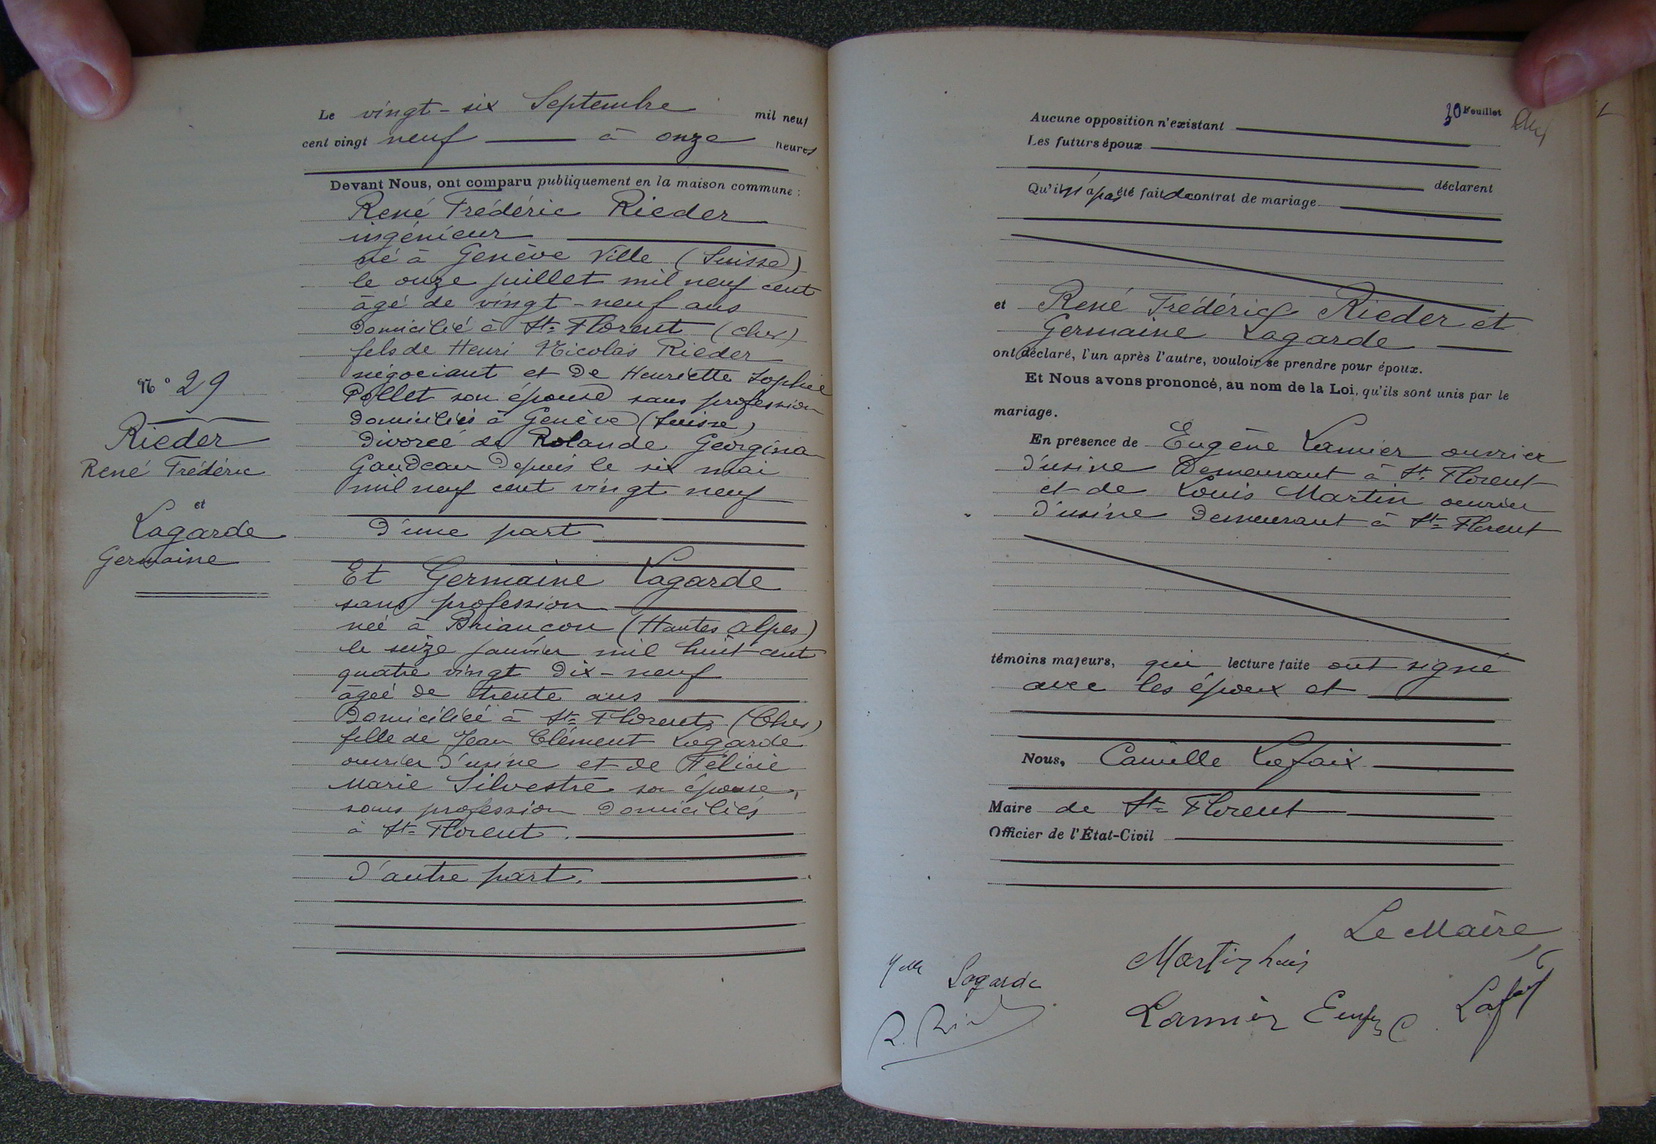 Le vingt-six Septembre mil neuf
cent vingt neuf à onze heures
Devant Nous, ont comparu publiquement en la maison commune :
René Frédéric Rieder
ingénieur
né à Genève Ville (Suisse)
le onze juillet mil neuf cent
âgé de vingt-neuf ans
domicilié à St-Florent (cher)
fils de Henri Nicolas Rieder
négociant et de Henriette Sophie
Pollet son épouse sans profession
domiciliés à Genève (Suisse)
divorcé de Rolande Georgina
Gaudeau depuis le six mai
mil neuf cent vingt neuf
d'une part
N° 29
Rieder
René Frédéric
et
Lagarde
Germaine
Et Germaine Lagarde
sans profession
née à Briancon (Hautes Alpes)
le seize janvier mil huit cent
quatre vingt dix-neuf
âgée de trente ans
domiciliée à St-Florent (Cher)
fille de Jean Clément Lagarde
ouvrier d'usine et de Félicie
Marie Silvestre son épouse,
sans profession domiciliés
à St-Florent.
d'autre part.
30 Feuillet
Aucune opposition n'existant
Les futurs époux
déclarent
Qu'il n'a pas été fait de contrat de mariage
et René Frédéric Rieder et
Germaine Lagarde
ont déclaré, l'un après l'autre, vouloir se prendre pour époux.
Et Nous avons prononcé, au nom de la Loi, qu'ils sont unis par le
mariage.
En présence de Eugène Lamier ouvrier
d'usine demeurant à St-Florent
et de Louis Martin ouvrier
d'usine demeurant à St-Florent
témoins majeurs, qui lecture faite ont signé
avec les époux et
Nous, Camille Lafaix
Maire de St-Florent
Officier de l'État-Civil
Le Maire
Martin Louis
Lagarde
Lamier